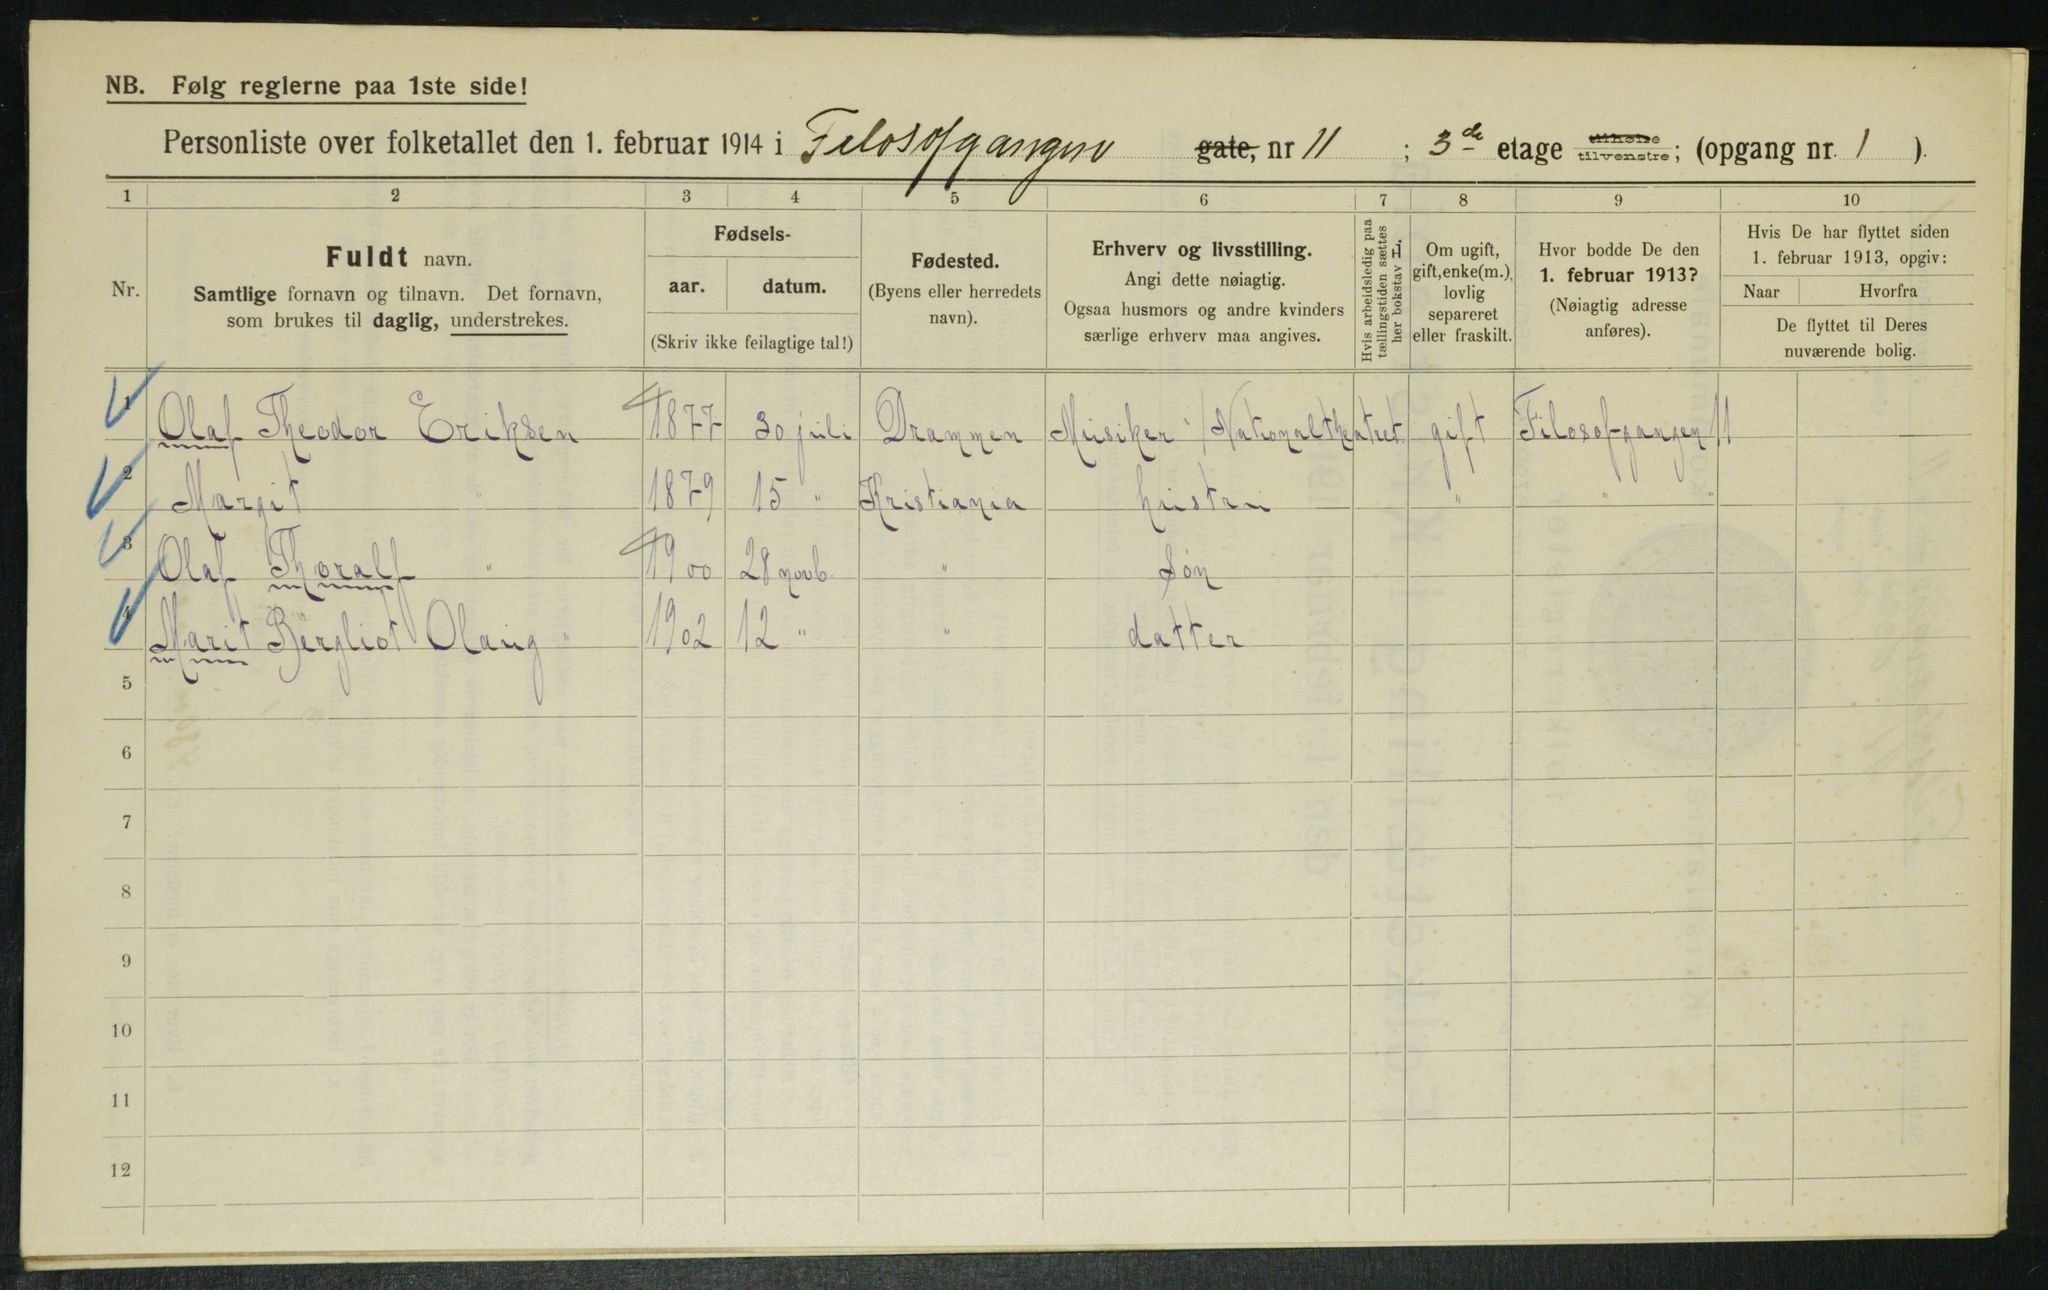 NB. Følg reglerne paa 1ste side!
Personliste over folketallet den 1. februar 1914 i Filosofgangen gate, nr 11 ; 3de etage tilhøire tilvenstre; (opgang nr. 1 ).
1 2 3 4 5 6 7 8 9 10
Nr.
Fuldt navn.
Samtlige fornavn og tilnavn. Det fornavn,
som brukes til daglig, understrekes.
Fødsels-
aar. datum.
(Skriv ikke feilagtige tal!)
Fødested.
(Byens eller herredets
navn).
Erhverv og livsstilling.
Angi dette nøiagtig.
Ogsaa husmors og andre kvinders
særlige erhverv maa angives.
Hvis arbeidsledig paa
tællingstiden sættes
her bokstav L.
Om ugift,
gift, enke(m.),
lovlig
separeret
eller fraskilt.
Hvor bodde De den
1. februar 1913?
(Nøiagtig adresse
anføres).
Hvis De har flyttet siden
1. februar 1913, opgiv:
Naar Hvorfra
De flyttet til Deres
nuværende bolig.
1 Olaf Theodor Eriksen 1877 30 juli Drammen Musiker v/Nationaltheatret gift Filosofgangen 11
2 Margit " 1879 15 " Kristiania hustru " " "
3 Olaf Thoralf " 1900 28 novb. " Søn
4 Marit Bergliot Olaug " 1902 12 " " datter
5
6
7
8
9
10
11
12